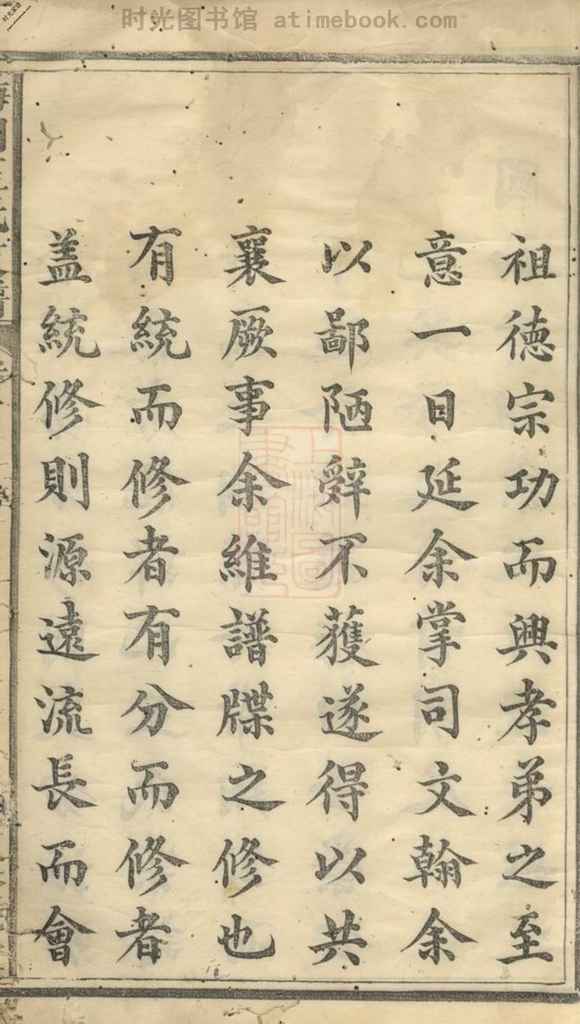 时光图书馆 atimebook.com
祖德宗功而興孝弟之至
意一日延余掌司文翰余
以鄙陋辭不獲遂得以共
襄厥事余維譜牒之修也
有統而修者有分而修者
盖統修則源遠流長而會